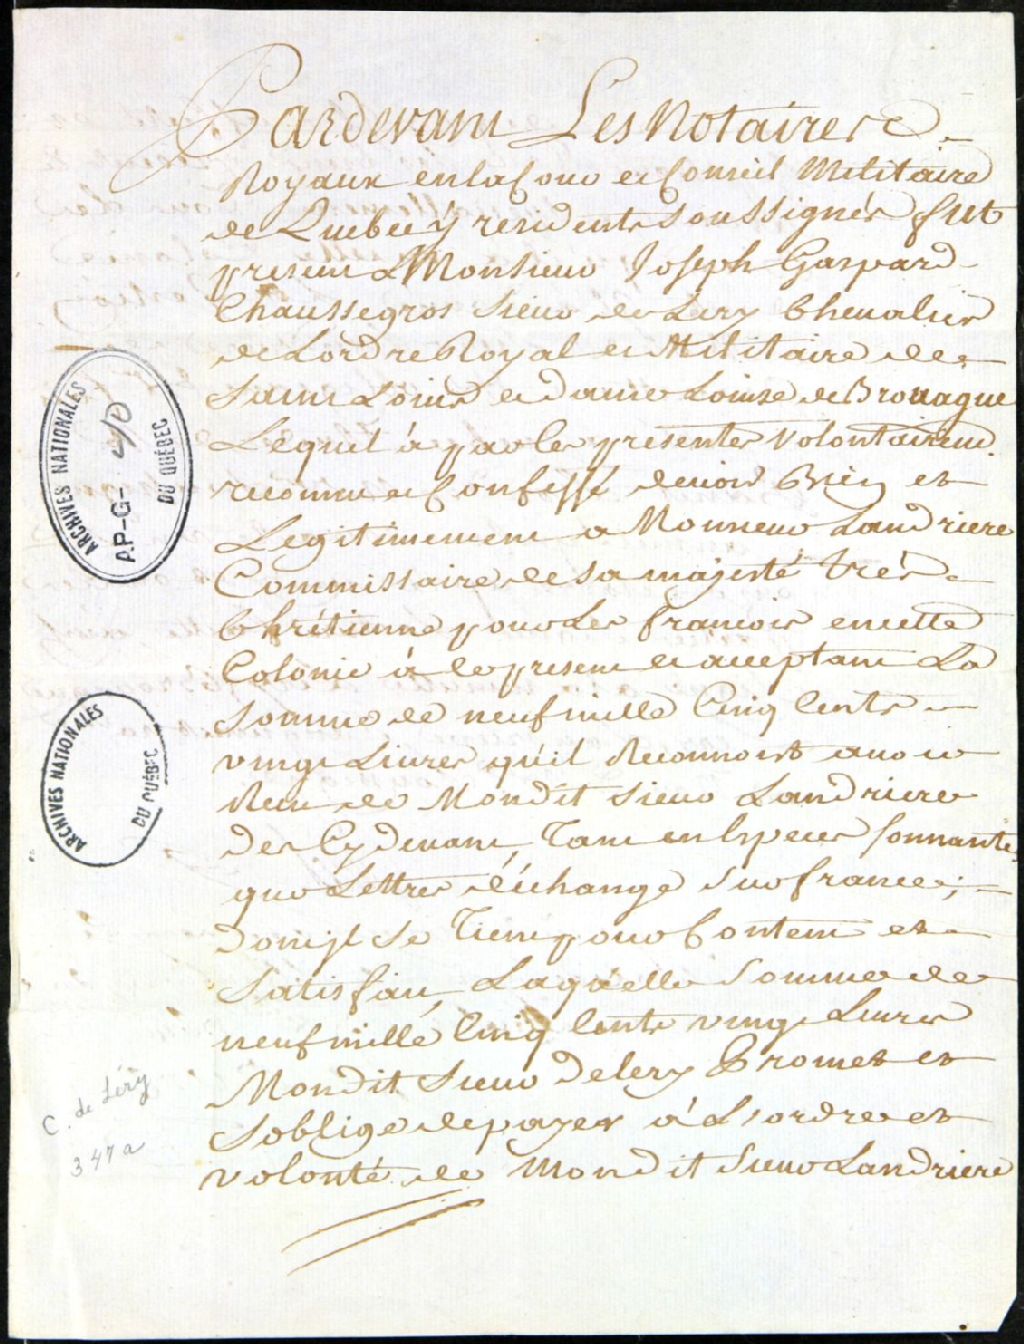 Pardevant Les Notaires
Royaux en la Cour et Conseil Militaire
de Quebec y residents soussignés fut
present Monsieur Joseph Gaspard
Chaussegros Sieur de Lery Chevalier
de Lordre Royal et Militaire de
Saint Louis et dame Louise de Brouague
Lequel à par les presentes volontairemt.
reconnu et Confessé devoir Bien et
Legitimement a Monsieur Landriere
Commissaire de sa majesté trés
Chrétienne pour les francois en cette
Colonie à ce present et acceptant La
somme de neuf mille Cinq Cents
vingt Livres qu'il Reconnoist avoir
Reçu de Mondit Sieur Landriere
des Cy devant Tant en Especes sonnantes
que Lettres d'Echange sur france;
dont jl se Tient pour Content et
satisfait, Laquelle somme de
neuf mille Cinq Cents vingt Livres
Mondit Sieur Delery Promet et
s'oblige de payer à L'ordre et
volonté de Mondit Sieur Landriere
ARCHIVES NATIONALES
A.P-G- 40
DU QUÉBEC
ARCHIVES NATIONALES
DU QUÉBEC
C. de Léry
347a